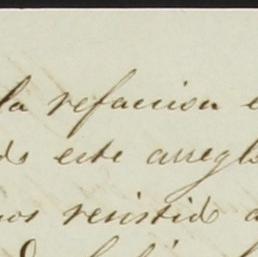 la refaccion e
do este arregl
mos resistido a